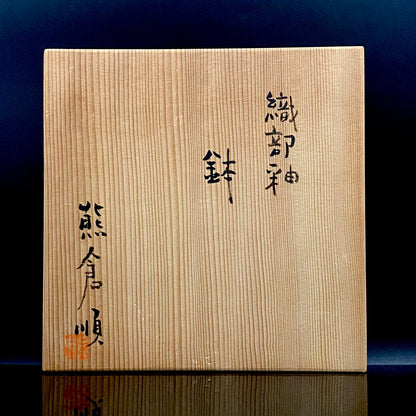 織部釉
鉢
熊倉順